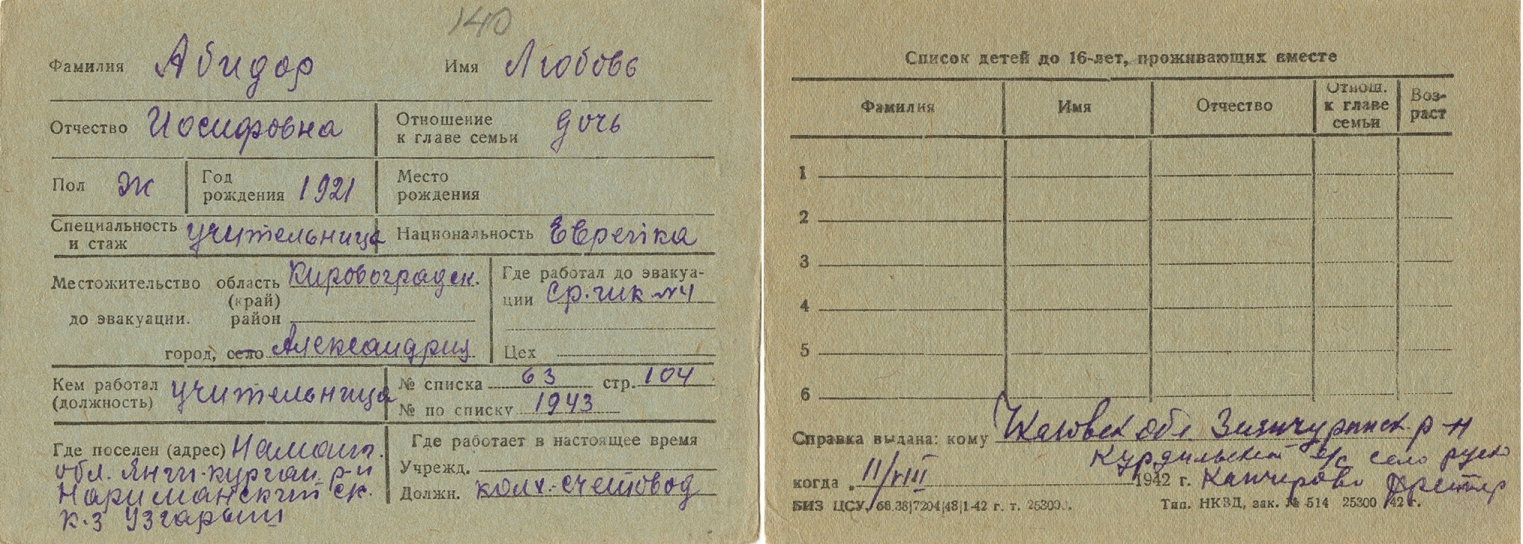 140
Фамилия Абидор Имя Любовь
Отчество Иосифовна Отношение к главе семьи дочь
Пол Ж Год рождения 1921 Место рождения
Специальность и стаж учительница Национальность Еврейка
Местожительство до эвакуации. область (край) Кировоградск.
район
город, село Александрия
Где работал до эвакуации ср. шк №4
Цех
Кем работал (должность) учительница
№ списка 63 стр. 104
№ по списку 1943
Где поселен (адрес) Наманг.
обл. Янги-курган. р-н
Нариманский ск.
к-з Узгариш
Где работает в настоящее время
Учрежд.
Должн. колх.-счетовод
Список детей до 16-лет, проживающих вместе
Фамилия Имя Отчество Отнош. к главе семьи Возраст
1
2
3
4
5
6
Справка выдана: кому Чкаловск обл Зиянчуринск р-н
с/с село
когда 11/VIII 1942 г.
БИЗ ЦСУ. 66.38|7204|48|1-42 г. т. 25300. Тип. НКВД, зак. № 514 25300 42 г.